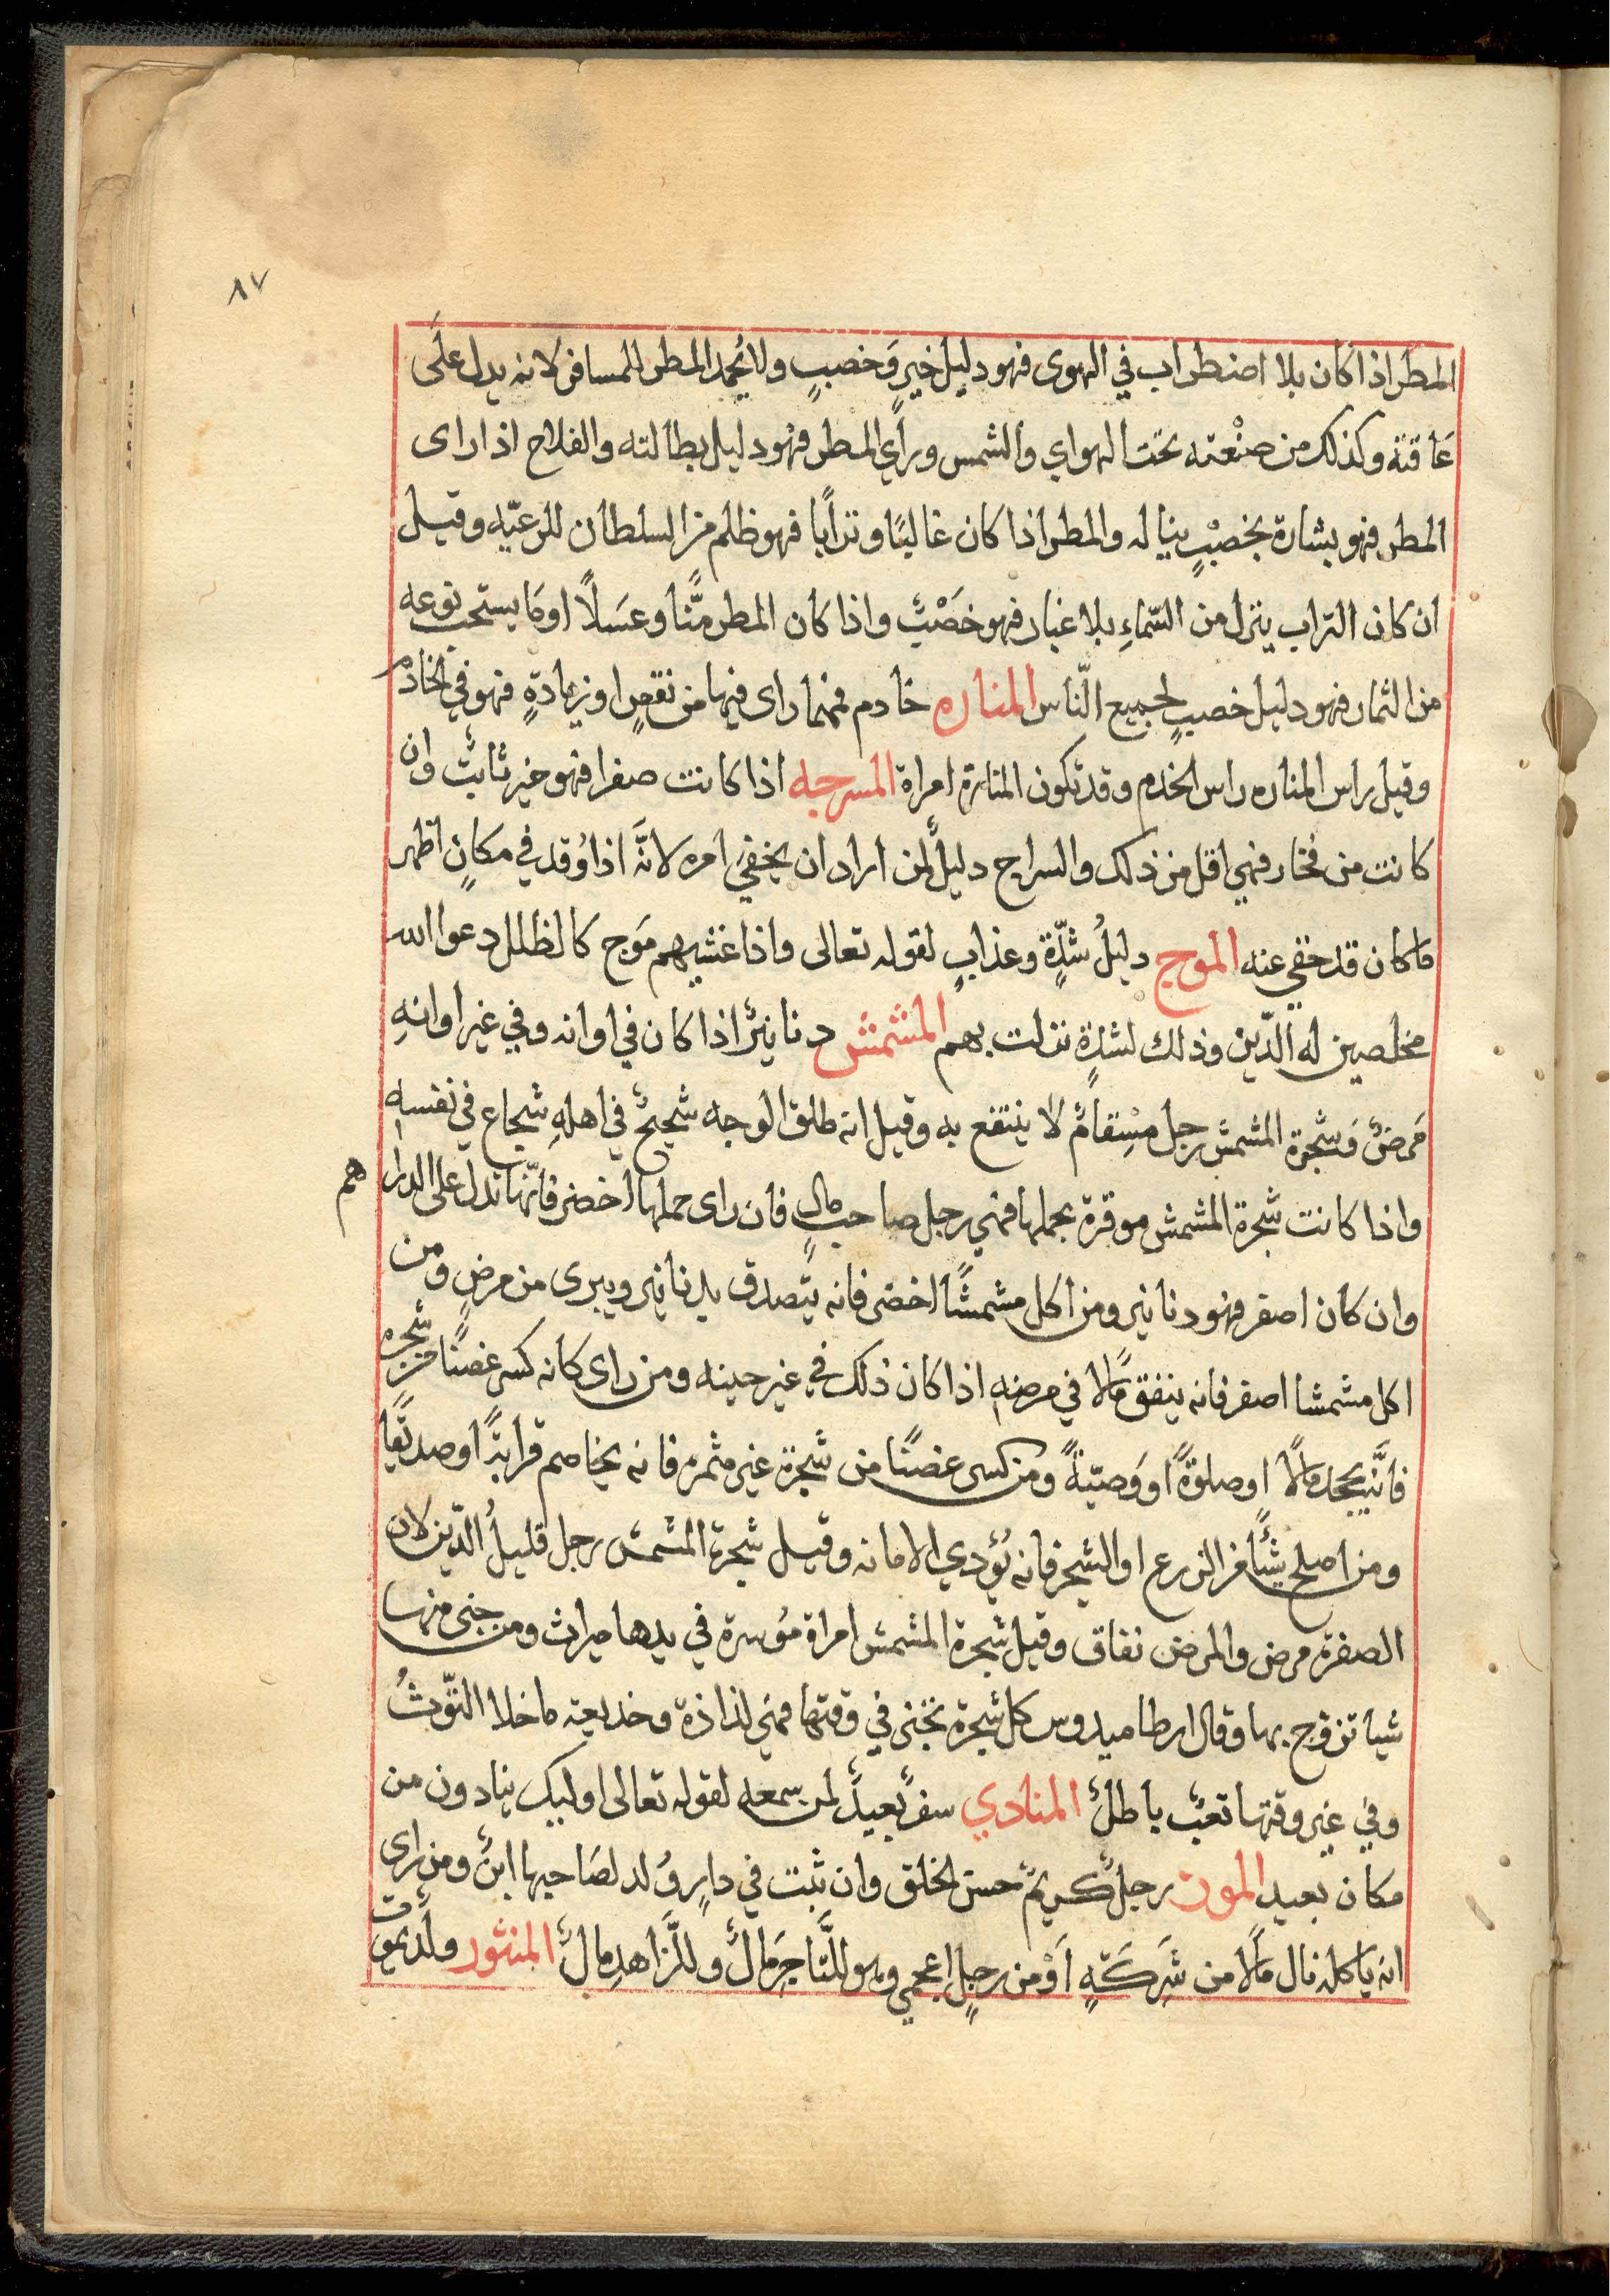 ٨٧
المطر اذا كان بلا اضطراب في الهوى فهو دليل خيرٍ وَخصبٍ ولا يُحمد المطر للمسافر لانه يدل علَى
عَاقتة وكذلك من صنْعته تحت الهواي والشمس وراَي المطر فهو دليل بطالته والفلاح اذا راى
المطر فهو بشارة بخصْبٍ يناله والمطر اذا كان غالبًا وترابًا فهو ظلم من السلطان للرعيّه وقيل
ان كان التراب ينزل من السّماءِ بلا غبار فهو خصْبٌ واذا كان المطر منًّا وعسَلاً اومَا يستحب نوعه
من الثمار فهو دليل خصبٍ لجميع النّاس المناره خادم فمهما راى فيها من نقصٍ او زيادةٍ فهو في الخادم
وقيل راس المناره راس الخدم وقد تكون المنارة امراة المسرجه اذا كانت صفرا فهو خير ثابتٌ وان
كانت من فخار فهي اقل من ذلك والسراج دليلٌ لمن اراد ان يخفيَ امره لانَّه اذا وُقد في مكانٍ اظهر
ماكان قد خفي عنه الموج دليلُ شدّةٍ وعذابٍ لقوله تعالى واذا غشيهم مَوج كالظلل دعوا الله
مخلصين له الدّين وذلك لشدّةٍ نزلت بهم المشمش دنانيرٌ اذا كان في اوانه وفي غير اوانهِ
مَرضٌ وَشجرة المشمش رجل مِسْقامٌ لا ينتفع به وقيل انه طلق الوجه شحيحٌ في اهلهِ شجاع في نفسه
واذا كانت شجرة المشمش موقرة بحملها فهي رجل صاحب مالٍ فان راى حملها اخضر فانّها تدل على الدرا هم
وان كان اصفر فهو دنانير ومن اكل مشمشًا اخضر فانه يتّصدق بدنانير ويبرى من مرضٍ ومن
اكل مشمشا اصفر فانه ينفق مالًا في مرضهِ اذا كان ذلك في غير حينه ومن راى كانه كسر غصنًا من شجره
فانَّه يجحد مالًا او صلوةً او وَصيّةً ومن كسر غصنًا من شجرة غير مثمره فانه يخاصم قرابةً او صديقًا
ومن اصلح شئًا من الزرع او الشجر فانه يُؤدي الامانه وقيل شجرة المشمش رجل قليلُ الدّين لان
الصفرة مرض والمرض نفاق وقيل شجرة المشمش امراة مُوسرة في يدها ميراث ومن جنى منها
شيا تزوج بها وقال ارطاميدوس كل شجرة تجنى في وقتها فهي لذاذة وخديعة ماخلا التّوثُ
وفي غير وقتها تعبٌ باطلٌ المنادي سفرٌ بعيدٌ لمن سمعه لقوله تعالى اوليك ينادون من
مكان بعيد الموز رجلٌ كريمٌ حسن الخلق وان نبت في دارٍ وُلد لصَاحبها ابنٌ ومن راى
انه ياكله نال مَالًا من شَرِكَتهٍ اَوْ من رجلٍ اعجمي وهو للتَّاجرِ مَالٌ وللزَّاهدِ مالٌ المنثور ولدٌ يموت